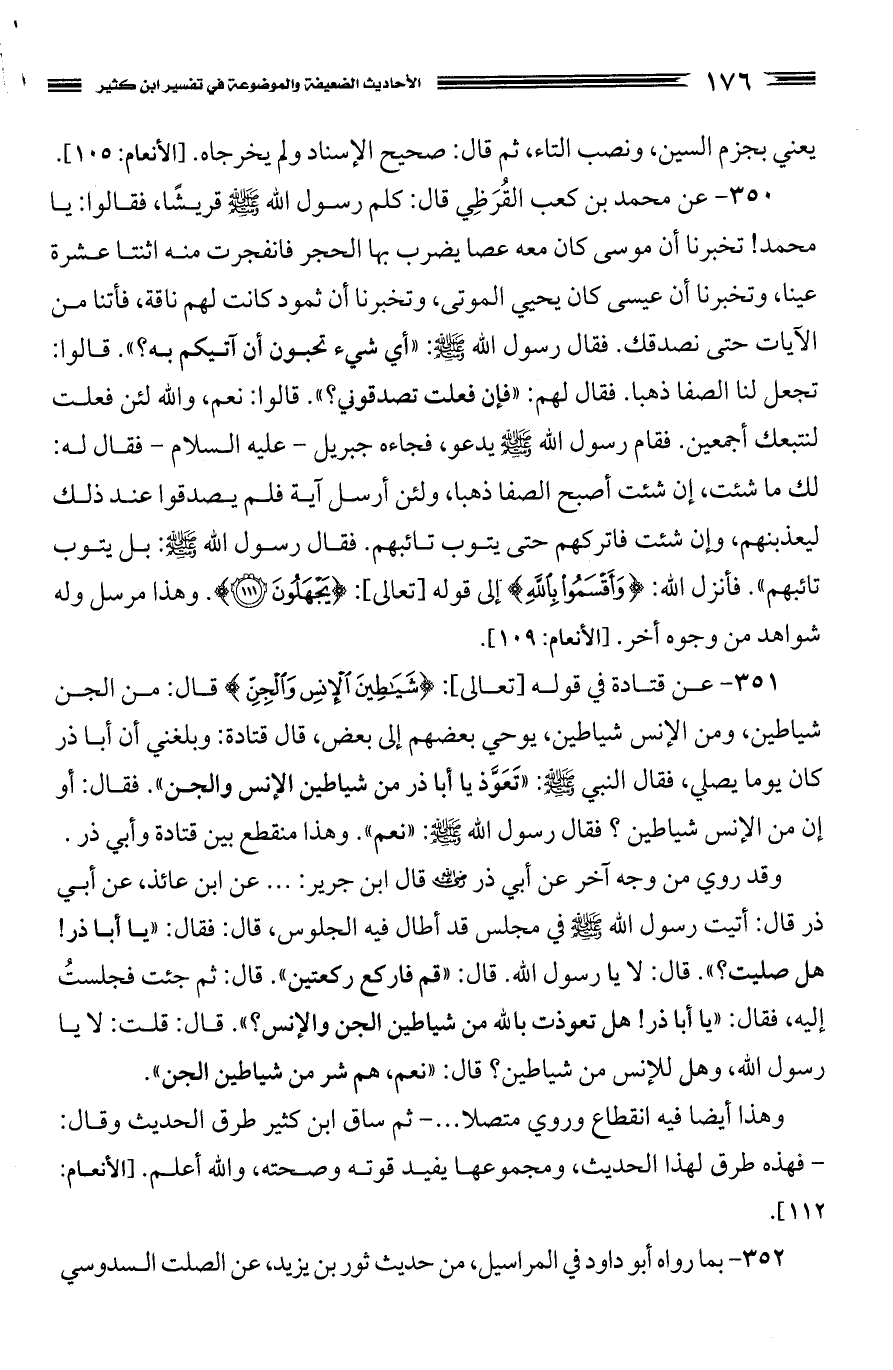 ١٧٦ الأحاديث الضعيفة والموضوعة في تفسير ابن كثير
يعني بجزم السين، ونصب التاء، ثم قال: صحيح الإسناد ولم يخرجاه. [الأنعام: ١٠٥].
٣٥٠- عن محمد بن كعب القُرَظِي قال: كلم رسول الله ﷺ قريشًا، فقالوا: يا
محمد! تخبرنا أن موسى كان معه عصا يضرب بها الحجر فانفجرت منه اثنتا عشرة
عينا، وتخبرنا أن عيسى كان يحيي الموتى، وتخبرنا أن ثمود كانت لهم ناقة، فأتنا من
الآيات حتى نصدقك. فقال رسول الله ﷺ: «أي شيء تحبون أن آتيكم به؟». قالوا:
تجعل لنا الصفا ذهبا. فقال لهم: «فإن فعلت تصدقوني؟». قالوا: نعم، والله لئن فعلت
لنتبعك أجمعين. فقام رسول الله ﷺ يدعو، فجاءه جبريل - عليه السلام - فقال له:
لك ما شئت، إن شئت أصبح الصفا ذهبا، ولئن أرسل آية فلم يصدقوا عند ذلك
ليعذبنهم، وإن شئت فاتركهم حتى يتوب تائبهم. فقال رسول الله ﷺ: بل يتوب
تائبهم». فأنزل الله: ﴿وَأَقْسَمُوا۟ بِٱللَّهِ﴾ إلى قوله [تعالى]: ﴿يَجْهَلُونَ ١١١﴾. وهذا مرسل وله
شواهد من وجوه أخر. [الأنعام: ١٠٩].
٣٥١- عن قتادة في قوله [تعالى]: ﴿شَيَـٰطِينَ ٱلْإِنسِ وَٱلْجِنِّ﴾ قال: من الجن
شياطين، ومن الإنس شياطين، يوحي بعضهم إلى بعض، قال قتادة: وبلغني أن أبا ذر
كان يوما يصلي، فقال النبي ﷺ: «تَعَوَّذ يا أبا ذر من شياطين الإنس والجن». فقال: أو
إن من الإنس شياطين ؟ فقال رسول الله ﷺ: «نعم». وهذا منقطع بين قتادة وأبي ذر .
وقد روي من وجه آخر عن أبي ذر رضي الله عنه قال ابن جرير: ... عن ابن عائذ، عن أبي
ذر قال: أتيت رسول الله ﷺ في مجلس قد أطال فيه الجلوس، قال: فقال: «يا أبا ذر!
هل صليت؟». قال: لا يا رسول الله. قال: «قم فاركع ركعتين». قال: ثم جئت فجلستُ
إليه، فقال: «يا أبا ذر! هل تعوذت بالله من شياطين الجن والإنس؟». قال: قلت: لا يا
رسول الله، وهل للإنس من شياطين؟ قال: «نعم، هم شر من شياطين الجن».
وهذا أيضا فيه انقطاع وروي متصلا...- ثم ساق ابن كثير طرق الحديث وقال:
- فهذه طرق لهذا الحديث، ومجموعها يفيد قوته وصحته، والله أعلم. [الأنعام:
١١٢].
٣٥٢- بما رواه أبو داود في المراسيل، من حديث ثور بن يزيد، عن الصلت السدوسي